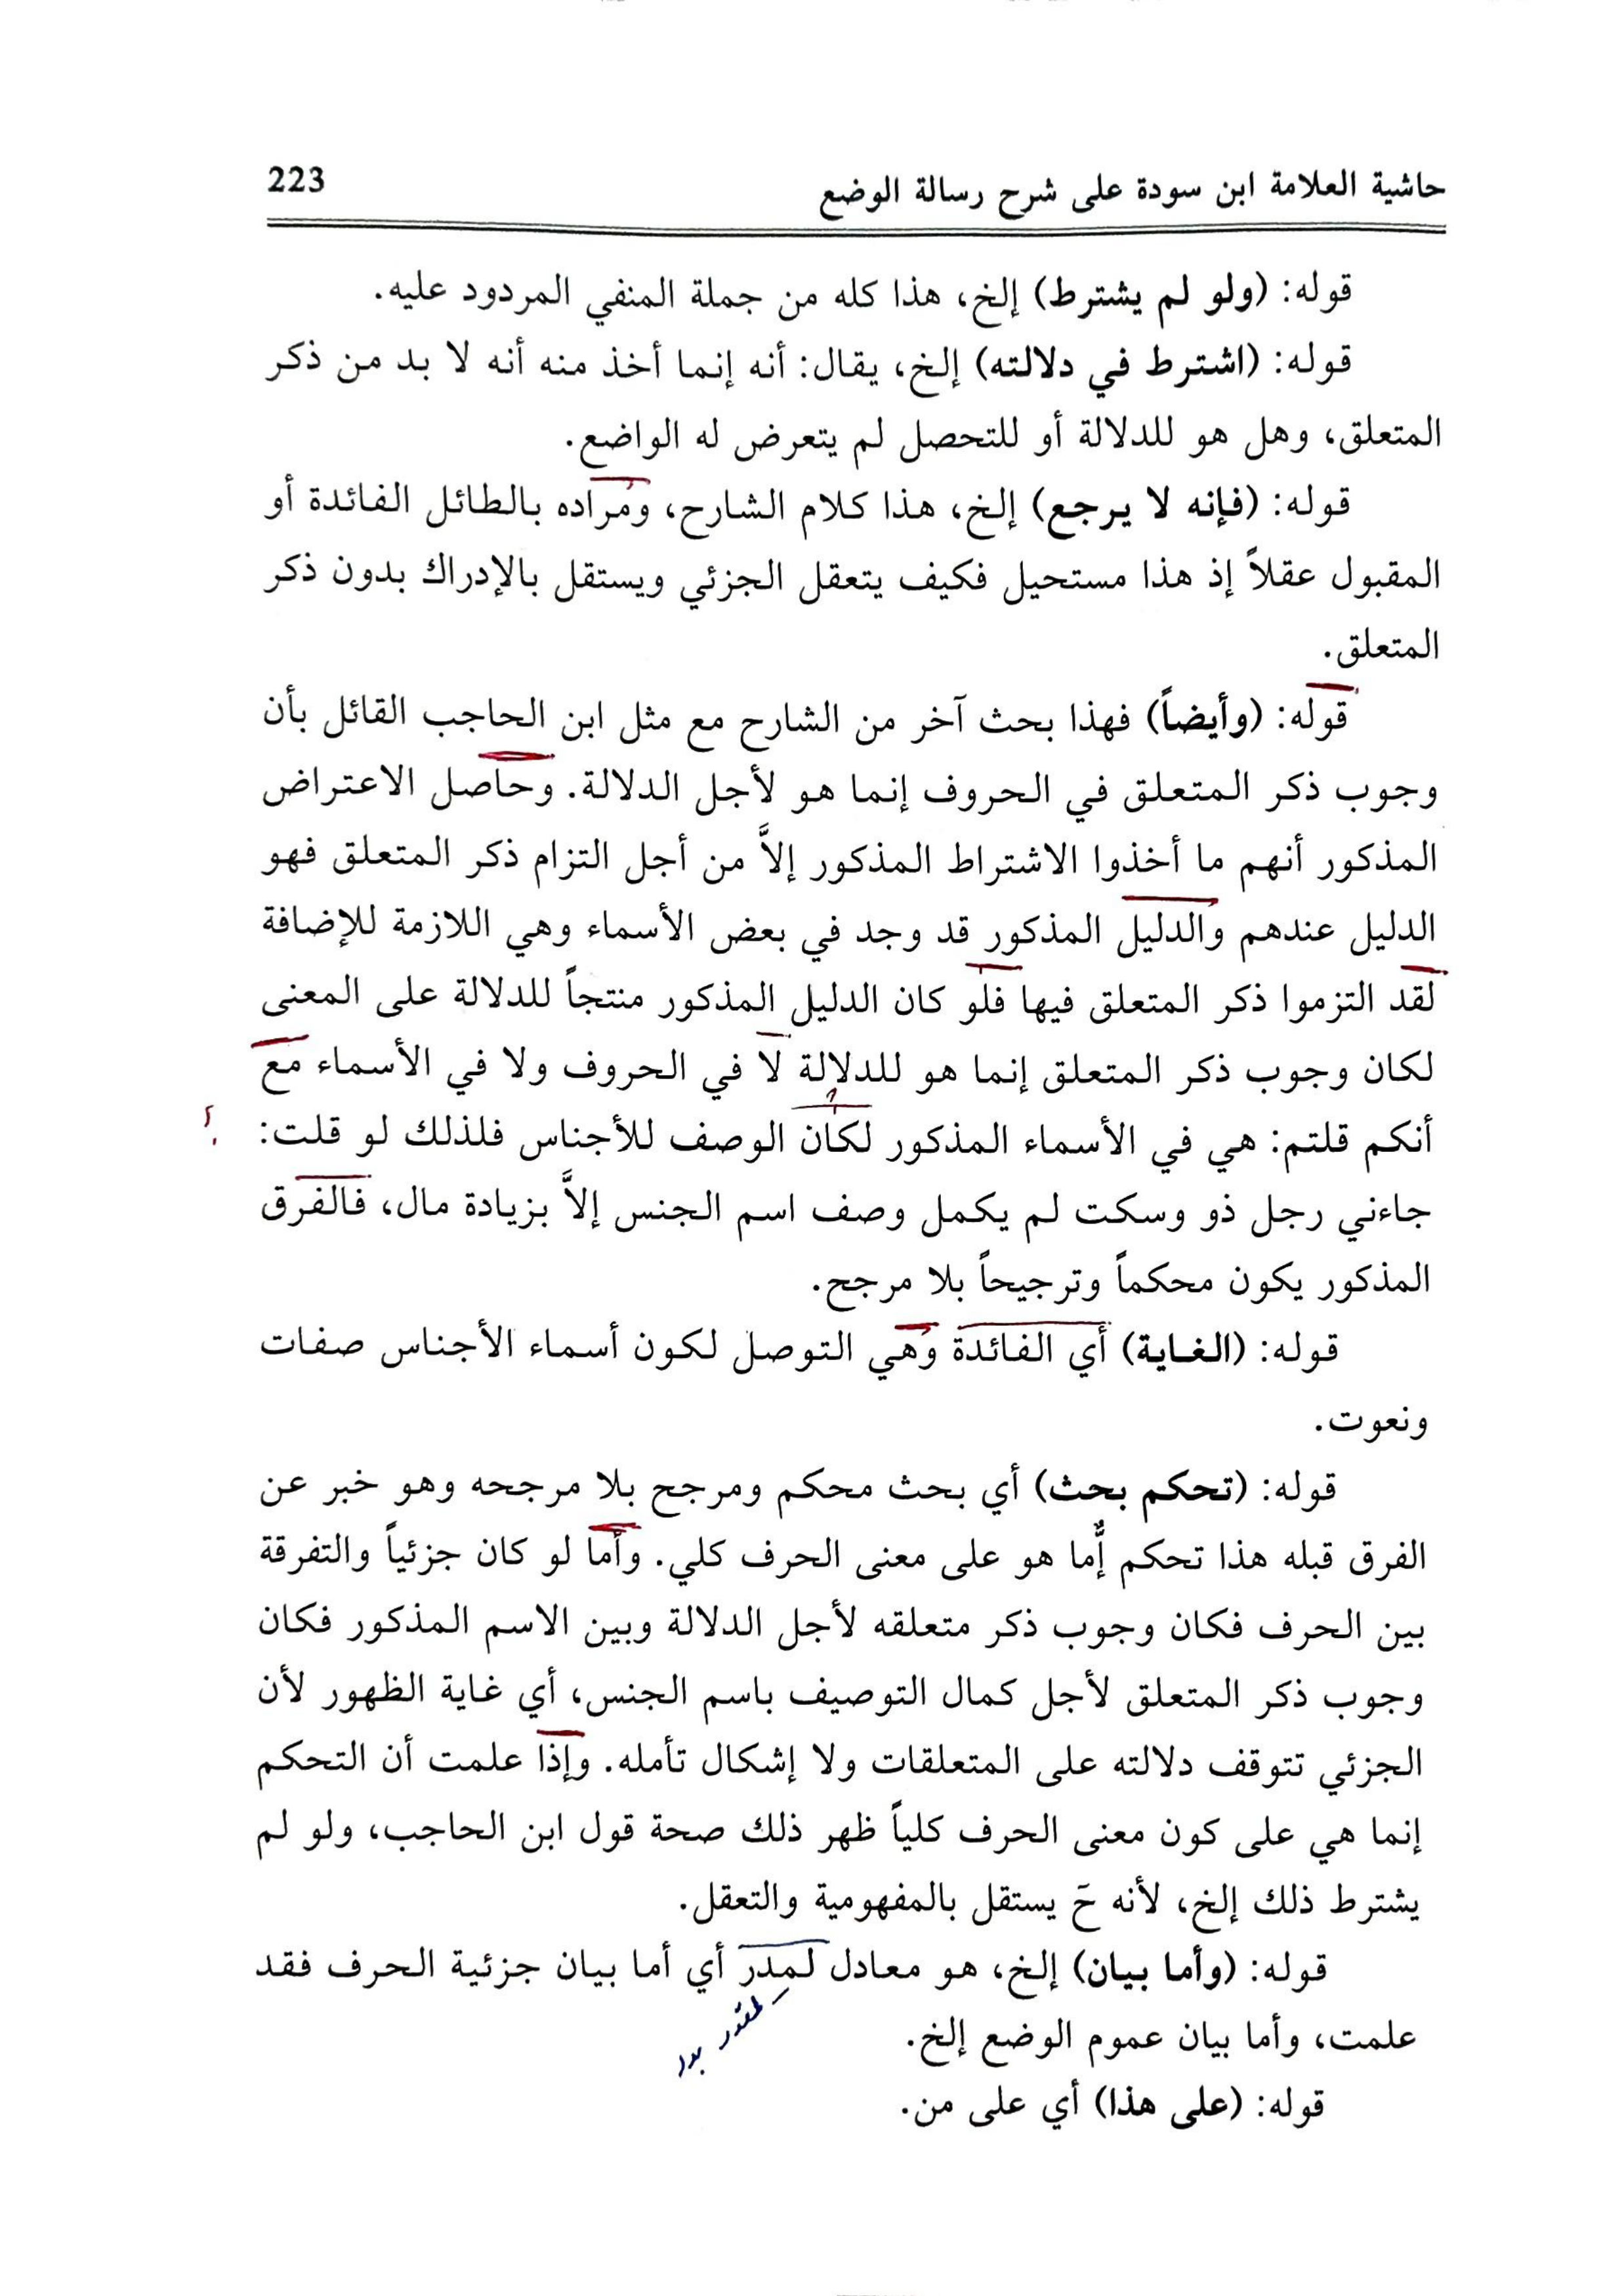 حاشية العلامة ابن سودة على شرح رسالة الوضع 223
قوله: (ولو لم يشترط) إلخ، هذا كله من جملة المنفي المردود عليه.
قوله: (اشترط في دلالته) إلخ، يقال: أنه إنما أخذ منه أنه لا بد من ذكر
المتعلق، وهل هو للدلالة أو للتحصل لم يتعرض له الواضع.
قوله: (فإنه لا يرجع) إلخ، هذا كلام الشارح، ومراده بالطائل الفائدة أو
المقبول عقلاً إذ هذا مستحيل فكيف يتعقل الجزئي ويستقل بالإدراك بدون ذكر
المتعلق.
قوله: (وأيضاً) فهذا بحث آخر من الشارح مع مثل ابن الحاجب القائل بأن
وجوب ذكر المتعلق في الحروف إنما هو لأجل الدلالة. وحاصل الاعتراض
المذكور أنهم ما أخذوا الاشتراط المذكور إلاَّ من أجل التزام ذكر المتعلق فهو
الدليل عندهم والدليل المذكور قد وجد في بعض الأسماء وهي اللازمة للإضافة
لقد التزموا ذكر المتعلق فيها فلو كان الدليل المذكور منتجاً للدلالة على المعنى
لكان وجوب ذكر المتعلق إنما هو للدلالة لا في الحروف ولا في الأسماء مع
أنكم قلتم: هي في الأسماء المذكور لكان الوصف للأجناس فلذلك لو قلت:
جاءني رجل ذو وسكت لم يكمل وصف اسم الجنس إلاَّ بزيادة مال، فالفرق
المذكور يكون محكماً وترجيحاً بلا مرجح.
قوله: (الغاية) أي الفائدة وهي التوصل لكون أسماء الأجناس صفات
ونعوت.
قوله: (تحكم بحث) أي بحث محكم ومرجح بلا مرجحه وهو خبر عن
الفرق قبله هذا تحكم إٌّما هو على معنى الحرف كلي. وأما لو كان جزئياً والتفرقة
بين الحرف فكان وجوب ذكر متعلقه لأجل الدلالة وبين الاسم المذكور فكان
وجوب ذكر المتعلق لأجل كمال التوصيف باسم الجنس، أي غاية الظهور لأن
الجزئي تتوقف دلالته على المتعلقات ولا إشكال تأمله. وإذا علمت أن التحكم
إنما هي على كون معنى الحرف كلياً ظهر ذلك صحة قول ابن الحاجب، ولو لم
يشترط ذلك إلخ، لأنه حَ يستقل بالمفهومية والتعقل.
قوله: (وأما بيان) إلخ، هو معادل لمدر أي أما بيان جزئية الحرف فقد
لمقدر
علمت، وأما بيان عموم الوضع إلخ.
قوله: (على هذا) أي على من.